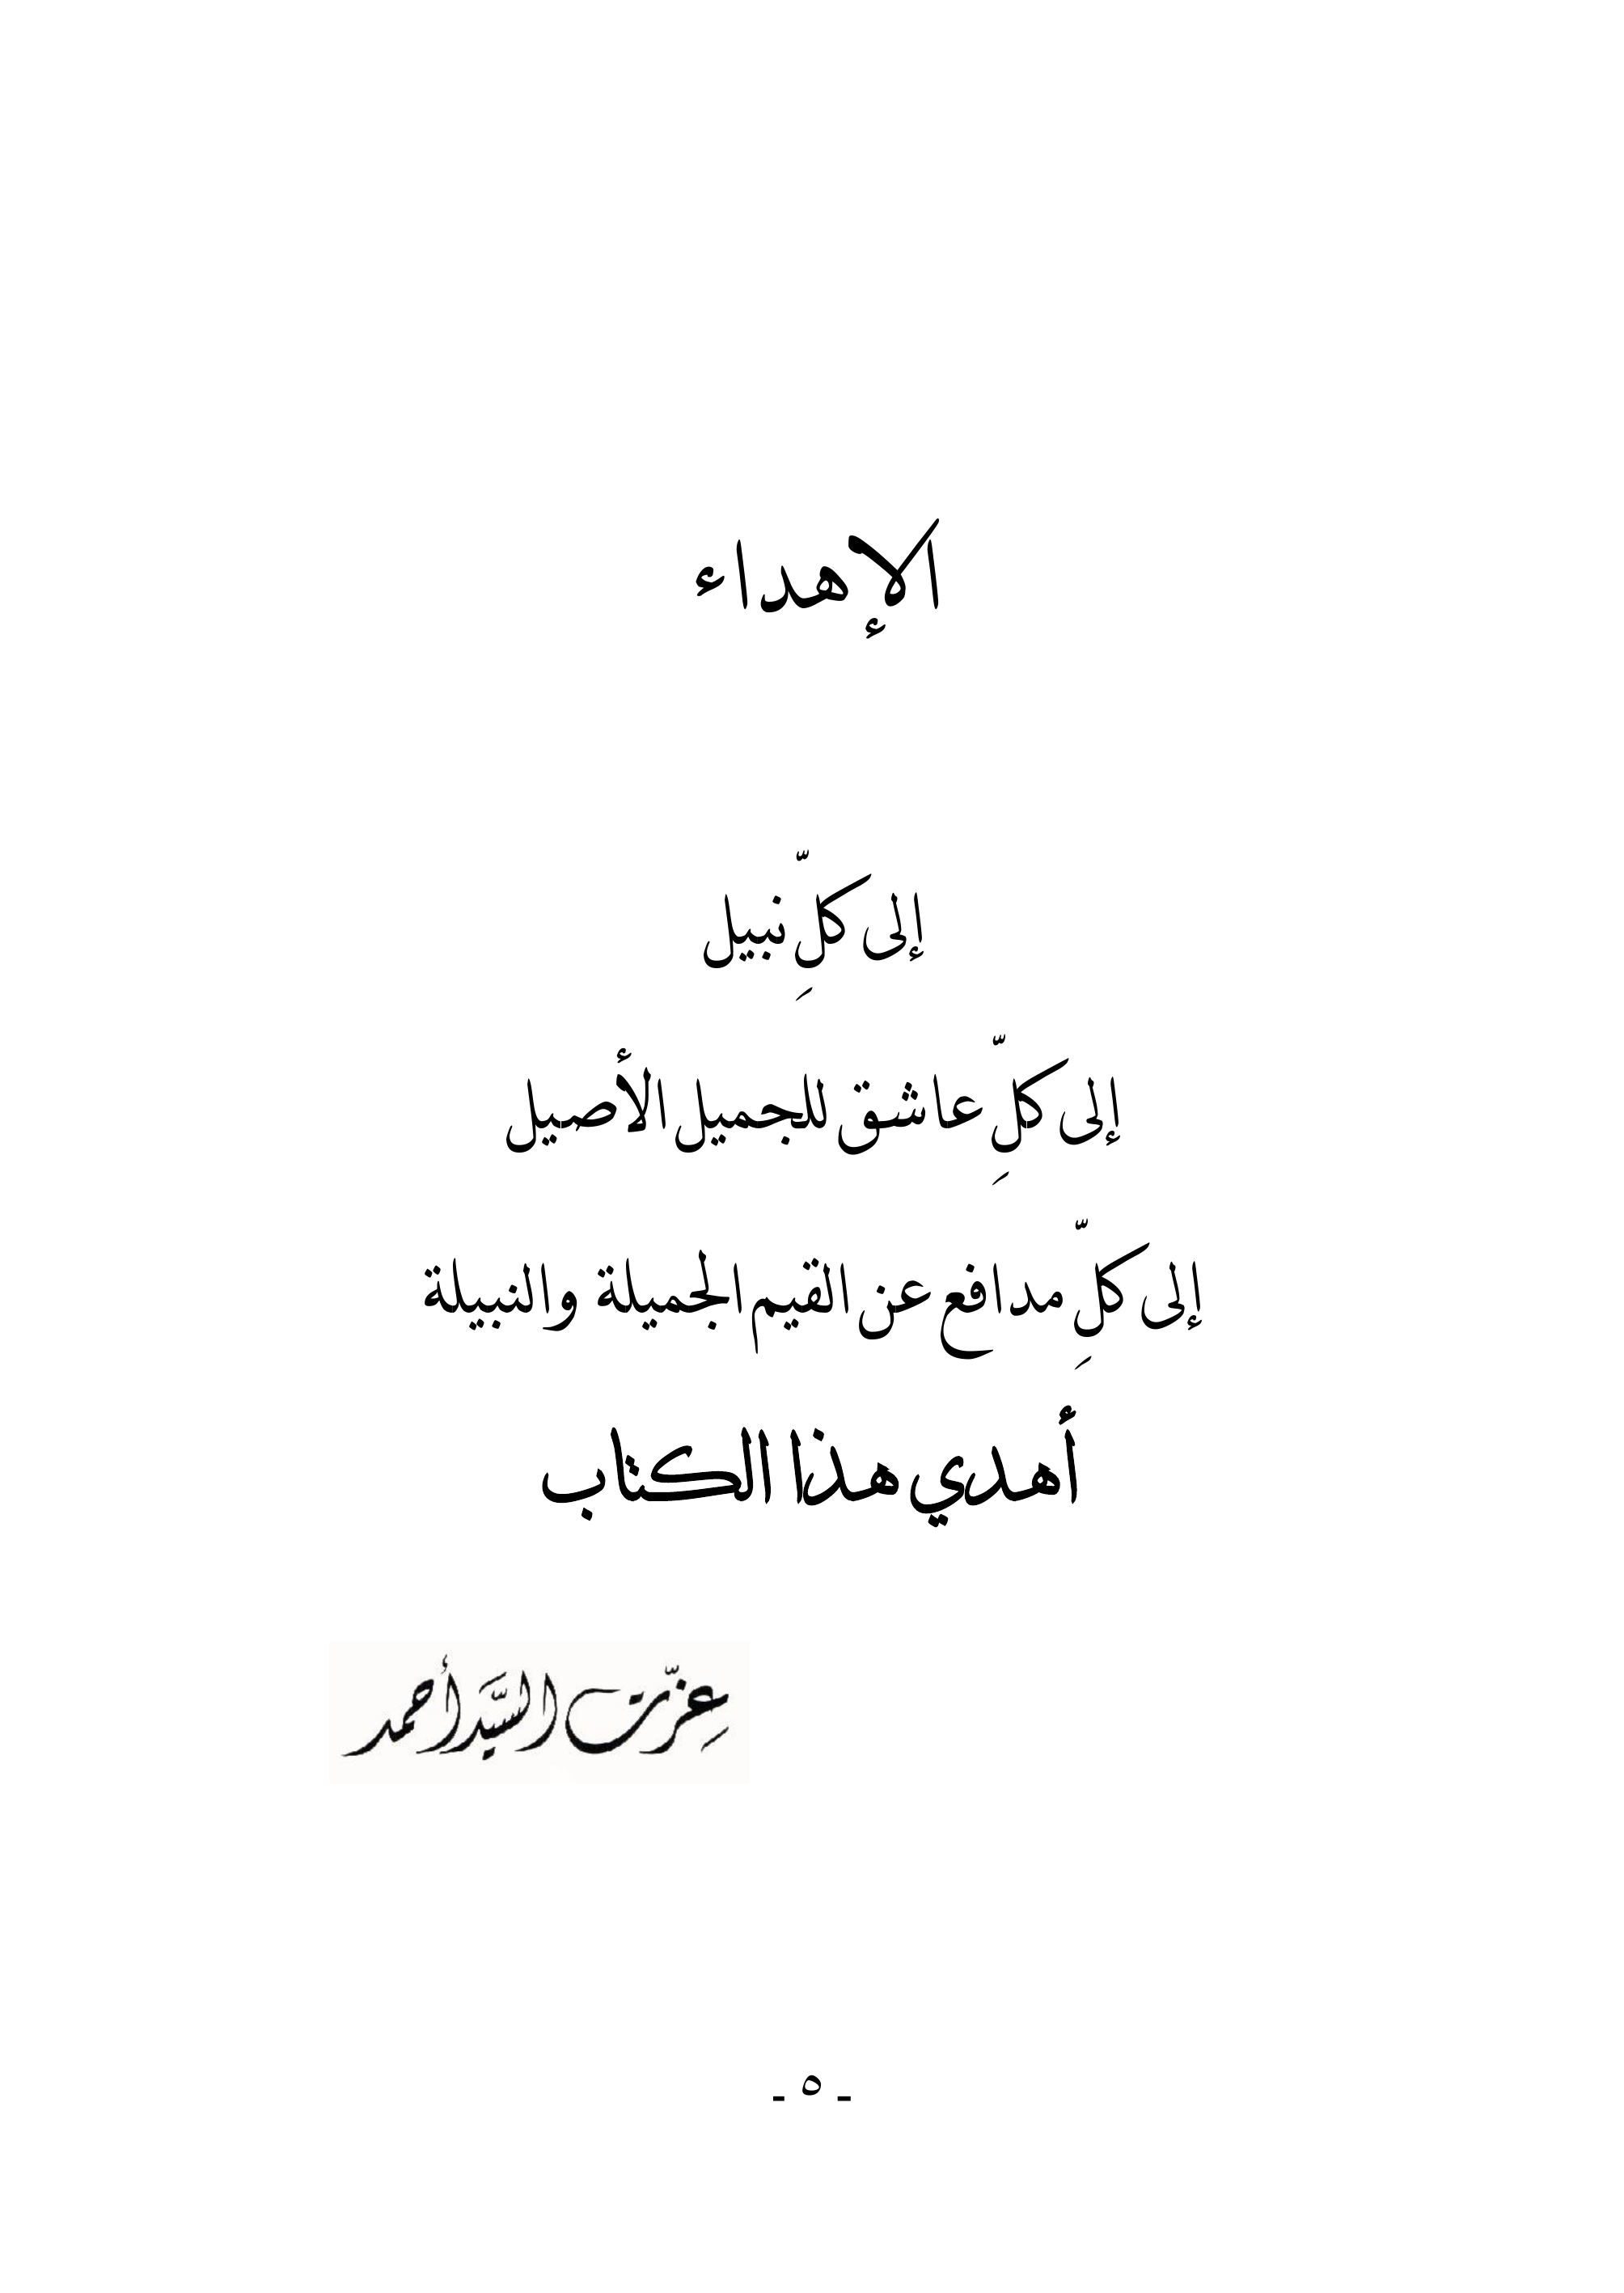 الإهداء
إلى كلِّ نبيل
إلى كلِّ عاشق للجميل الأصيل
إلى كلِّ مدافع عن القيم الجميلة والنبيلة
أهدي هذا الكتاب
عِزّت السَّيّد أحمد
ـ ٥ ـ